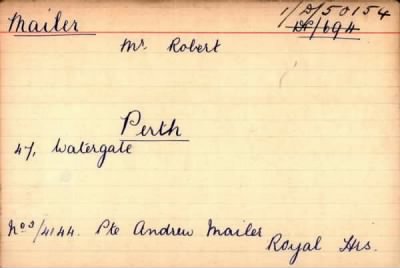 Mailer 1/D/50154
D/694
Mr. Robert
Perth
47, Watergate
No 3/4144. Pte Andrew Mailer
Royal Hrs.